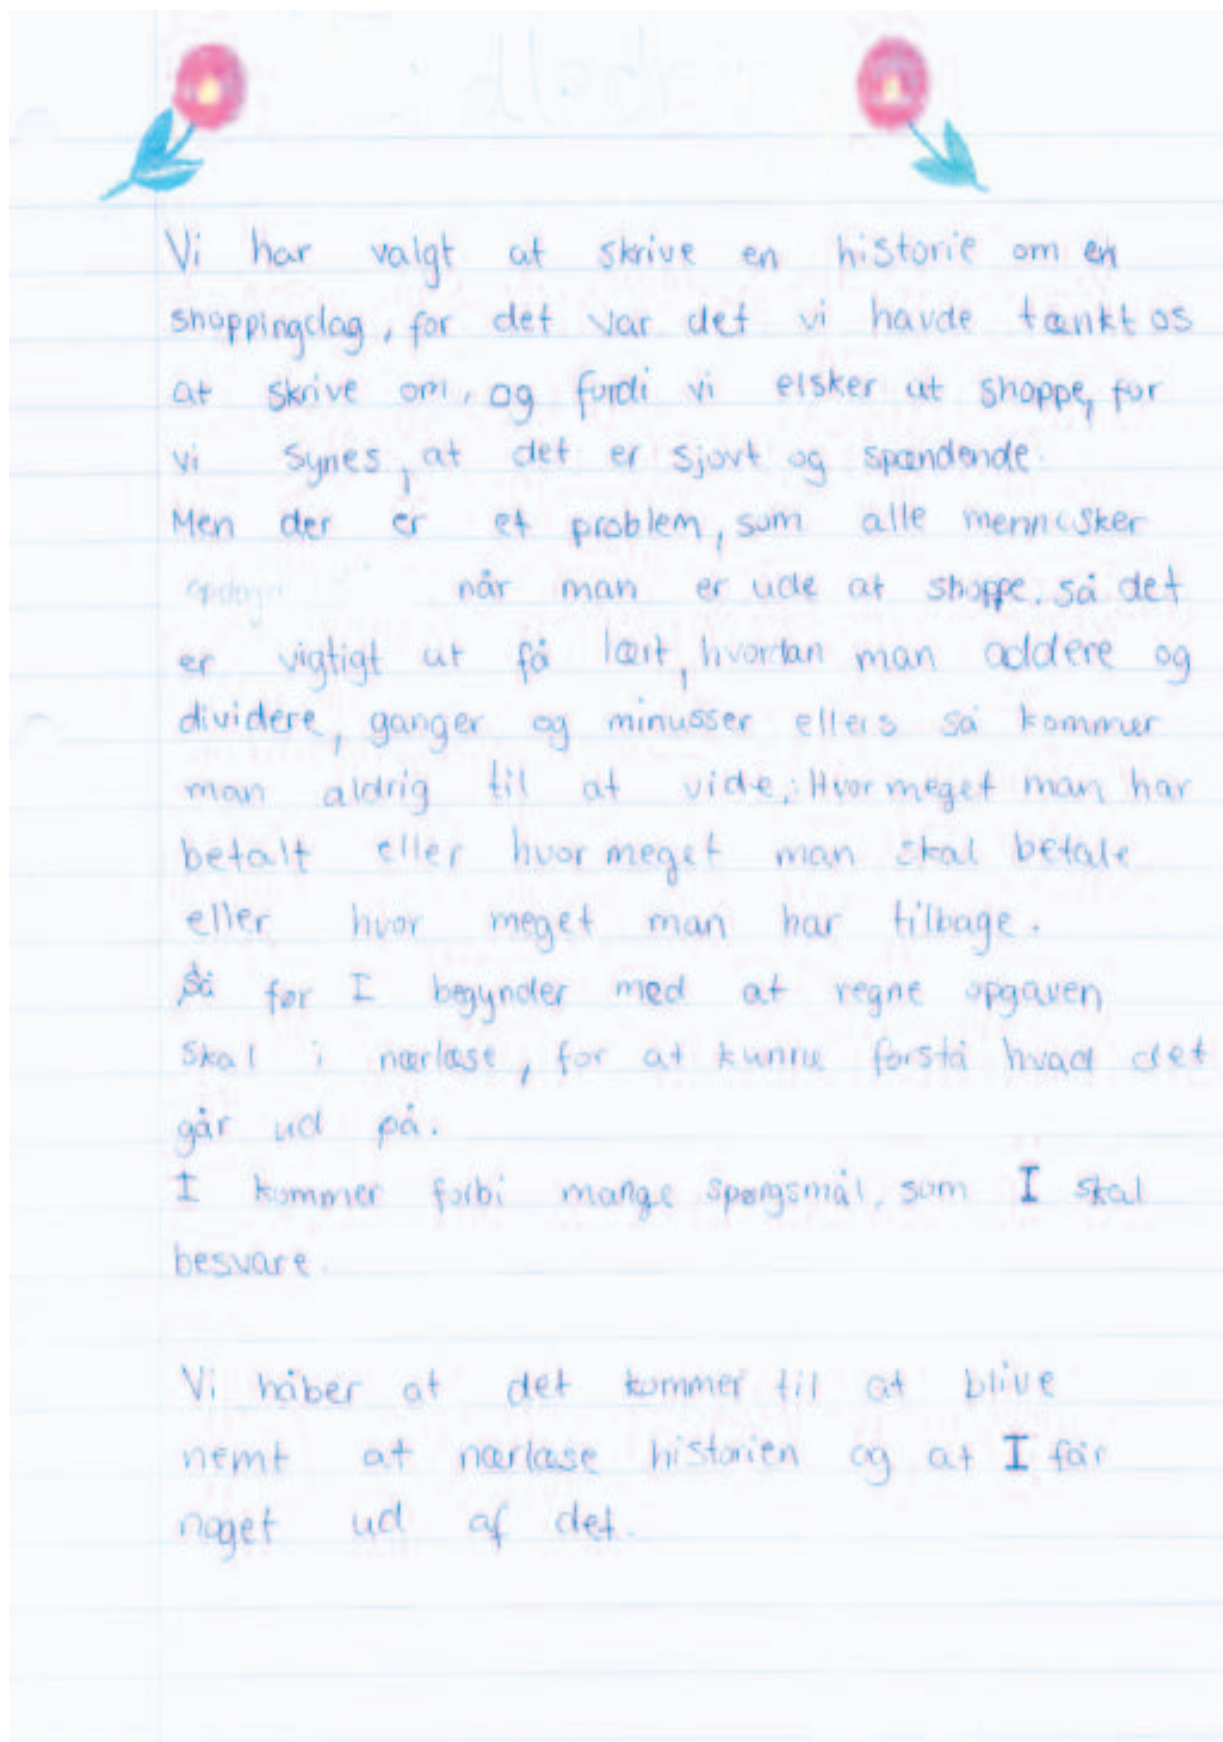 Vi har valgt at skrive en historie om en
shoppingdag, for det var det vi havde tænkt os
at skrive om, og fordi vi elsker at shoppe, for
vi synes, at det er sjovt og spændende.
Men der er et problem, som alle mennesker
når man er ude at shoppe. så det
er vigtigt at få lært, hvordan man addere og
dividere, ganger og minusser ellers så kommer
man aldrig til at vide: Hvor meget man har
betalt eller hvor meget man skal betale
eller hvor meget man har tilbage.
Så før I begynder med at regne opgaven
skal i nærlæse, for at kunne forstå hvad det
går ud på.
I kommer forbi mange spørgsmål, som I skal
besvare.
Vi håber at det kommer til at blive
nemt at nærlæse historien og at I får
noget ud af det.